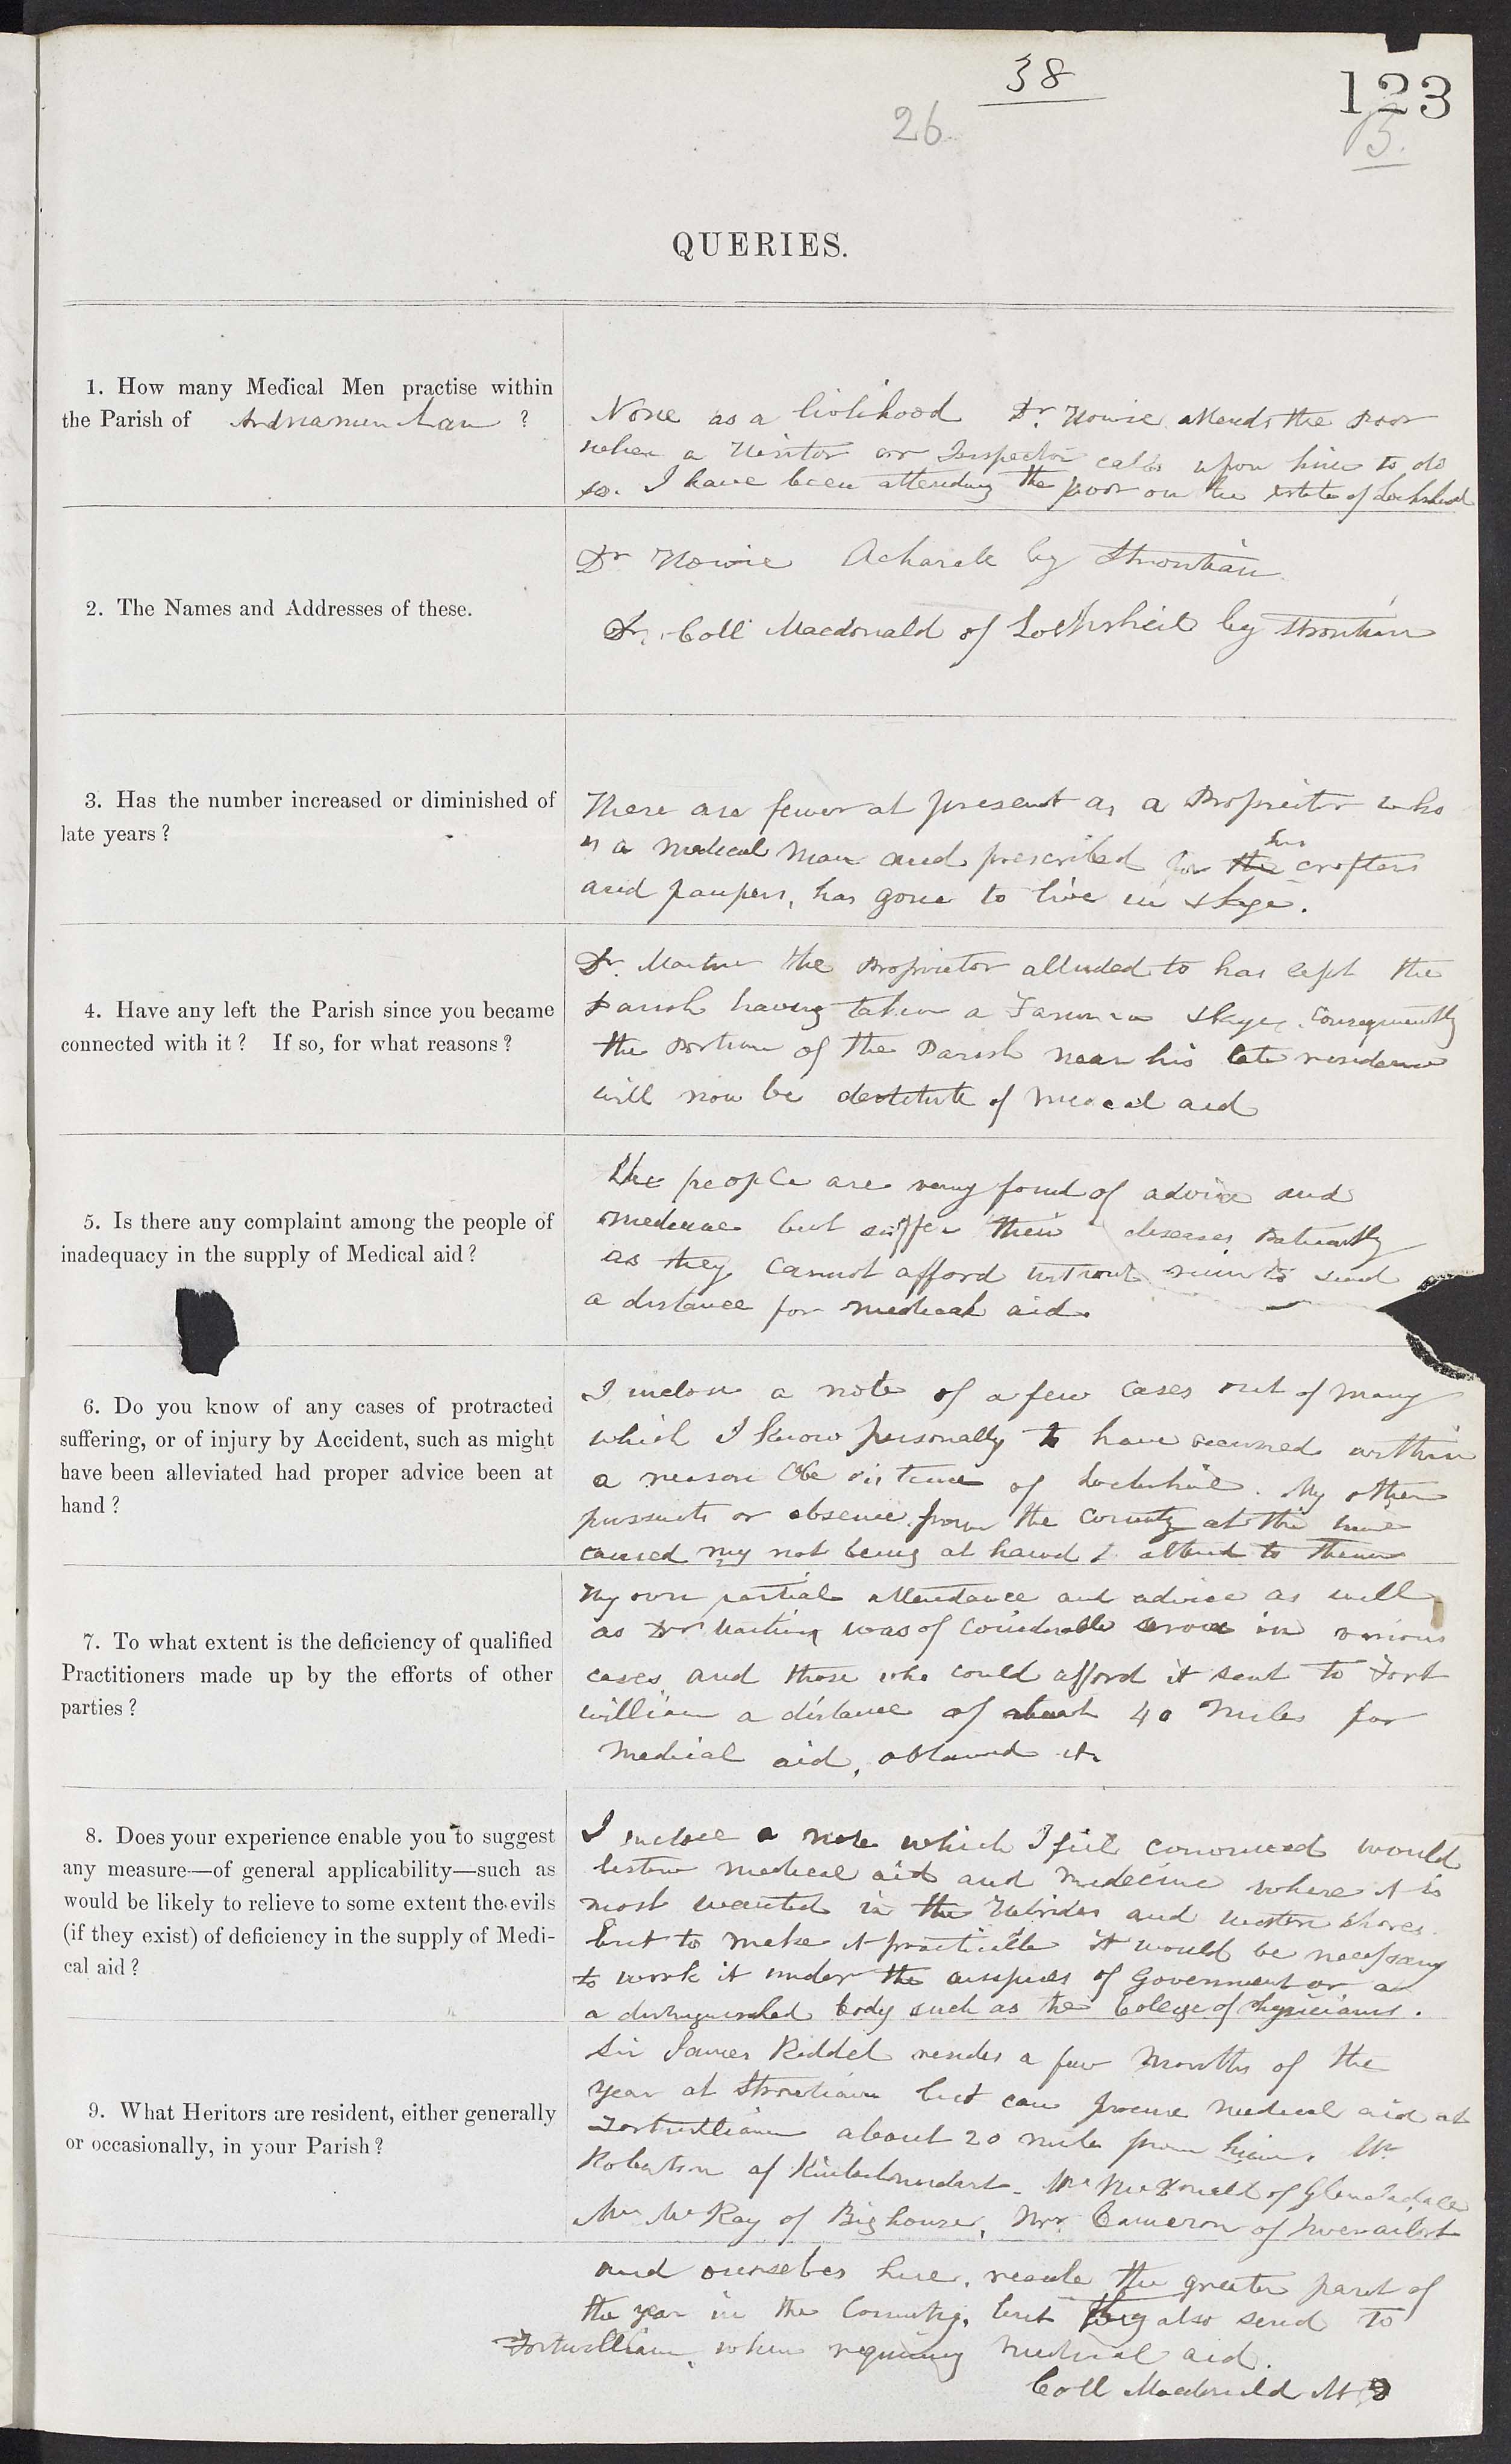 38
123
26
5.
QUERIES.
1. How many Medical Men practise within
the Parish of Ardnamurchan ?
None as a livlihood Dr. Howie attends the Poor
when a Visitor or Inspector calls upon him to do
so. I have been attending the poor on the estate of Lochshiel
2. The Names and Addresses of these.
Dr Howie Acharcle by Strontian
Dr. Coll Macdonald of Lochshiel by Strontian
3. Has the number increased or diminished of
late years ?
There are fewer at present as a Proprietor who
is a medical man and prescribed for the his crofters
and paupers, has gone to live in Skye.
4. Have any left the Parish since you became
connected with it ? If so, for what reasons ?
Dr. Martin the Proprietor alluded to has left the
Parish having taken a Farm in Skye, Consequently
the Portion of the Parish near his late residence
will now be destitute of medical aid
5. Is there any complaint among the people of
inadequacy in the supply of Medical aid ?
The people are very fond of advice and
medicine but suffer their diseases patiently
as they cannot afford without ruin to send
a distance for medical aid.
6. Do you know of any cases of protracted
suffering, or of injury by Accident, such as might
have been alleviated had proper advice been at
hand ?
I inclose a note of a few cases out of many
which I know personally to have occurred within
a reasonable distance of Lochshiel. My other
pursuits or absence from the County at the time
caused my not being at hand to attend to them
7. To what extent is the deficiency of qualified
Practitioners made up by the efforts of other
parties ?
My own partial attendance and advice as well
as Dr Martin was of considerable service in various
cases and those who could afford it sent to Fort
william a distance of about 40 miles for
medical aid, obtained it.
8. Does your experience enable you to suggest
any measure—of general applicability—such as
would be likely to relieve to some extent the evils
(if they exist) of deficiency in the supply of Medi-
cal aid ?
I inclose a note which I feel convinced would
bestow medical aid and medecine where it is
most wanted in the Hebrides and western shores
but to make it practicable it would be necessary
to work it under the auspices of Government or a
a distinguished body such as the College of Physicians.
9. What Heritors are resident, either generally
or occasionally, in your Parish ?
Sir James Riddel resides a few months of the
year at Strontian but can procure medical aid at
Fortwilliam about 20 miles from him. Mr
Robertson of Kinlochmoidart. Mr McDonald of Glenaladale
Mrs McKay of Bighouse, Mrs Cameron of Inverailort
and ourselves here, reside the greater part of
the year in the Country, but they also send to
Fortwilliam, when requiring medical aid.
Coll Macdonald MD